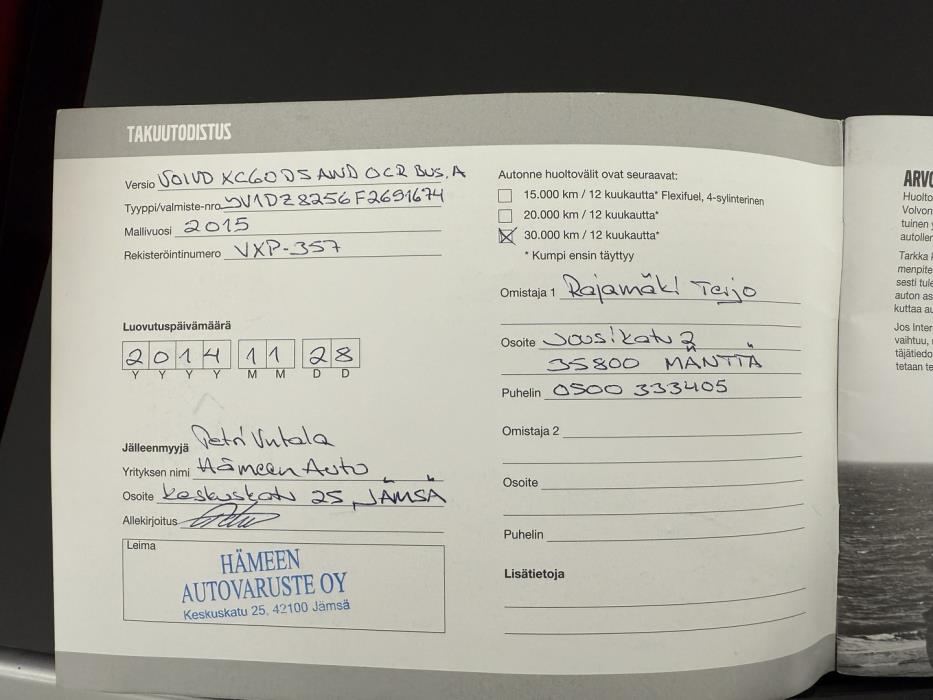 TAKUUTODISTUS
Versio VOLVO XC60 D5 AWD OCR BUS.A
Tyyppi/valmiste-nro YV1DZ8256F2691674
Mallivuosi 2015
Rekisteröintinumero VXP-357
Luovutuspäivämäärä
2014 11 28
Y Y Y Y M M D D
Jälleenmyyjä Petri Vutala
Yrityksen nimi Hämeen Auto
Osoite Keskuskatu 25, JÄMSÄ
Allekirjoitus
Leima
HÄMEEN
AUTOVARUSTE OY
Keskuskatu 25, 42100 Jämsä
Autonne huoltovälit ovat seuraavat:
15.000 km / 12 kuukautta* Flexifuel, 4-sylinterinen
20.000 km / 12 kuukautta*
30.000 km / 12 kuukautta*
* Kumpi ensin täyttyy
Omistaja 1 Rajamäki Terjo
Osoite Jousikatu 2
35800 MÄNTTÄ
Puhelin 0500 333405
Omistaja 2
Osoite
Puhelin
Lisätietoja
ARVO
Huolto
Volvon
tuinen
autoller
Tarkka
menpite
sesti tule
auton as
kuttaa au
Jos Inter
vaihtuu,
täjätiedo
tetaan te